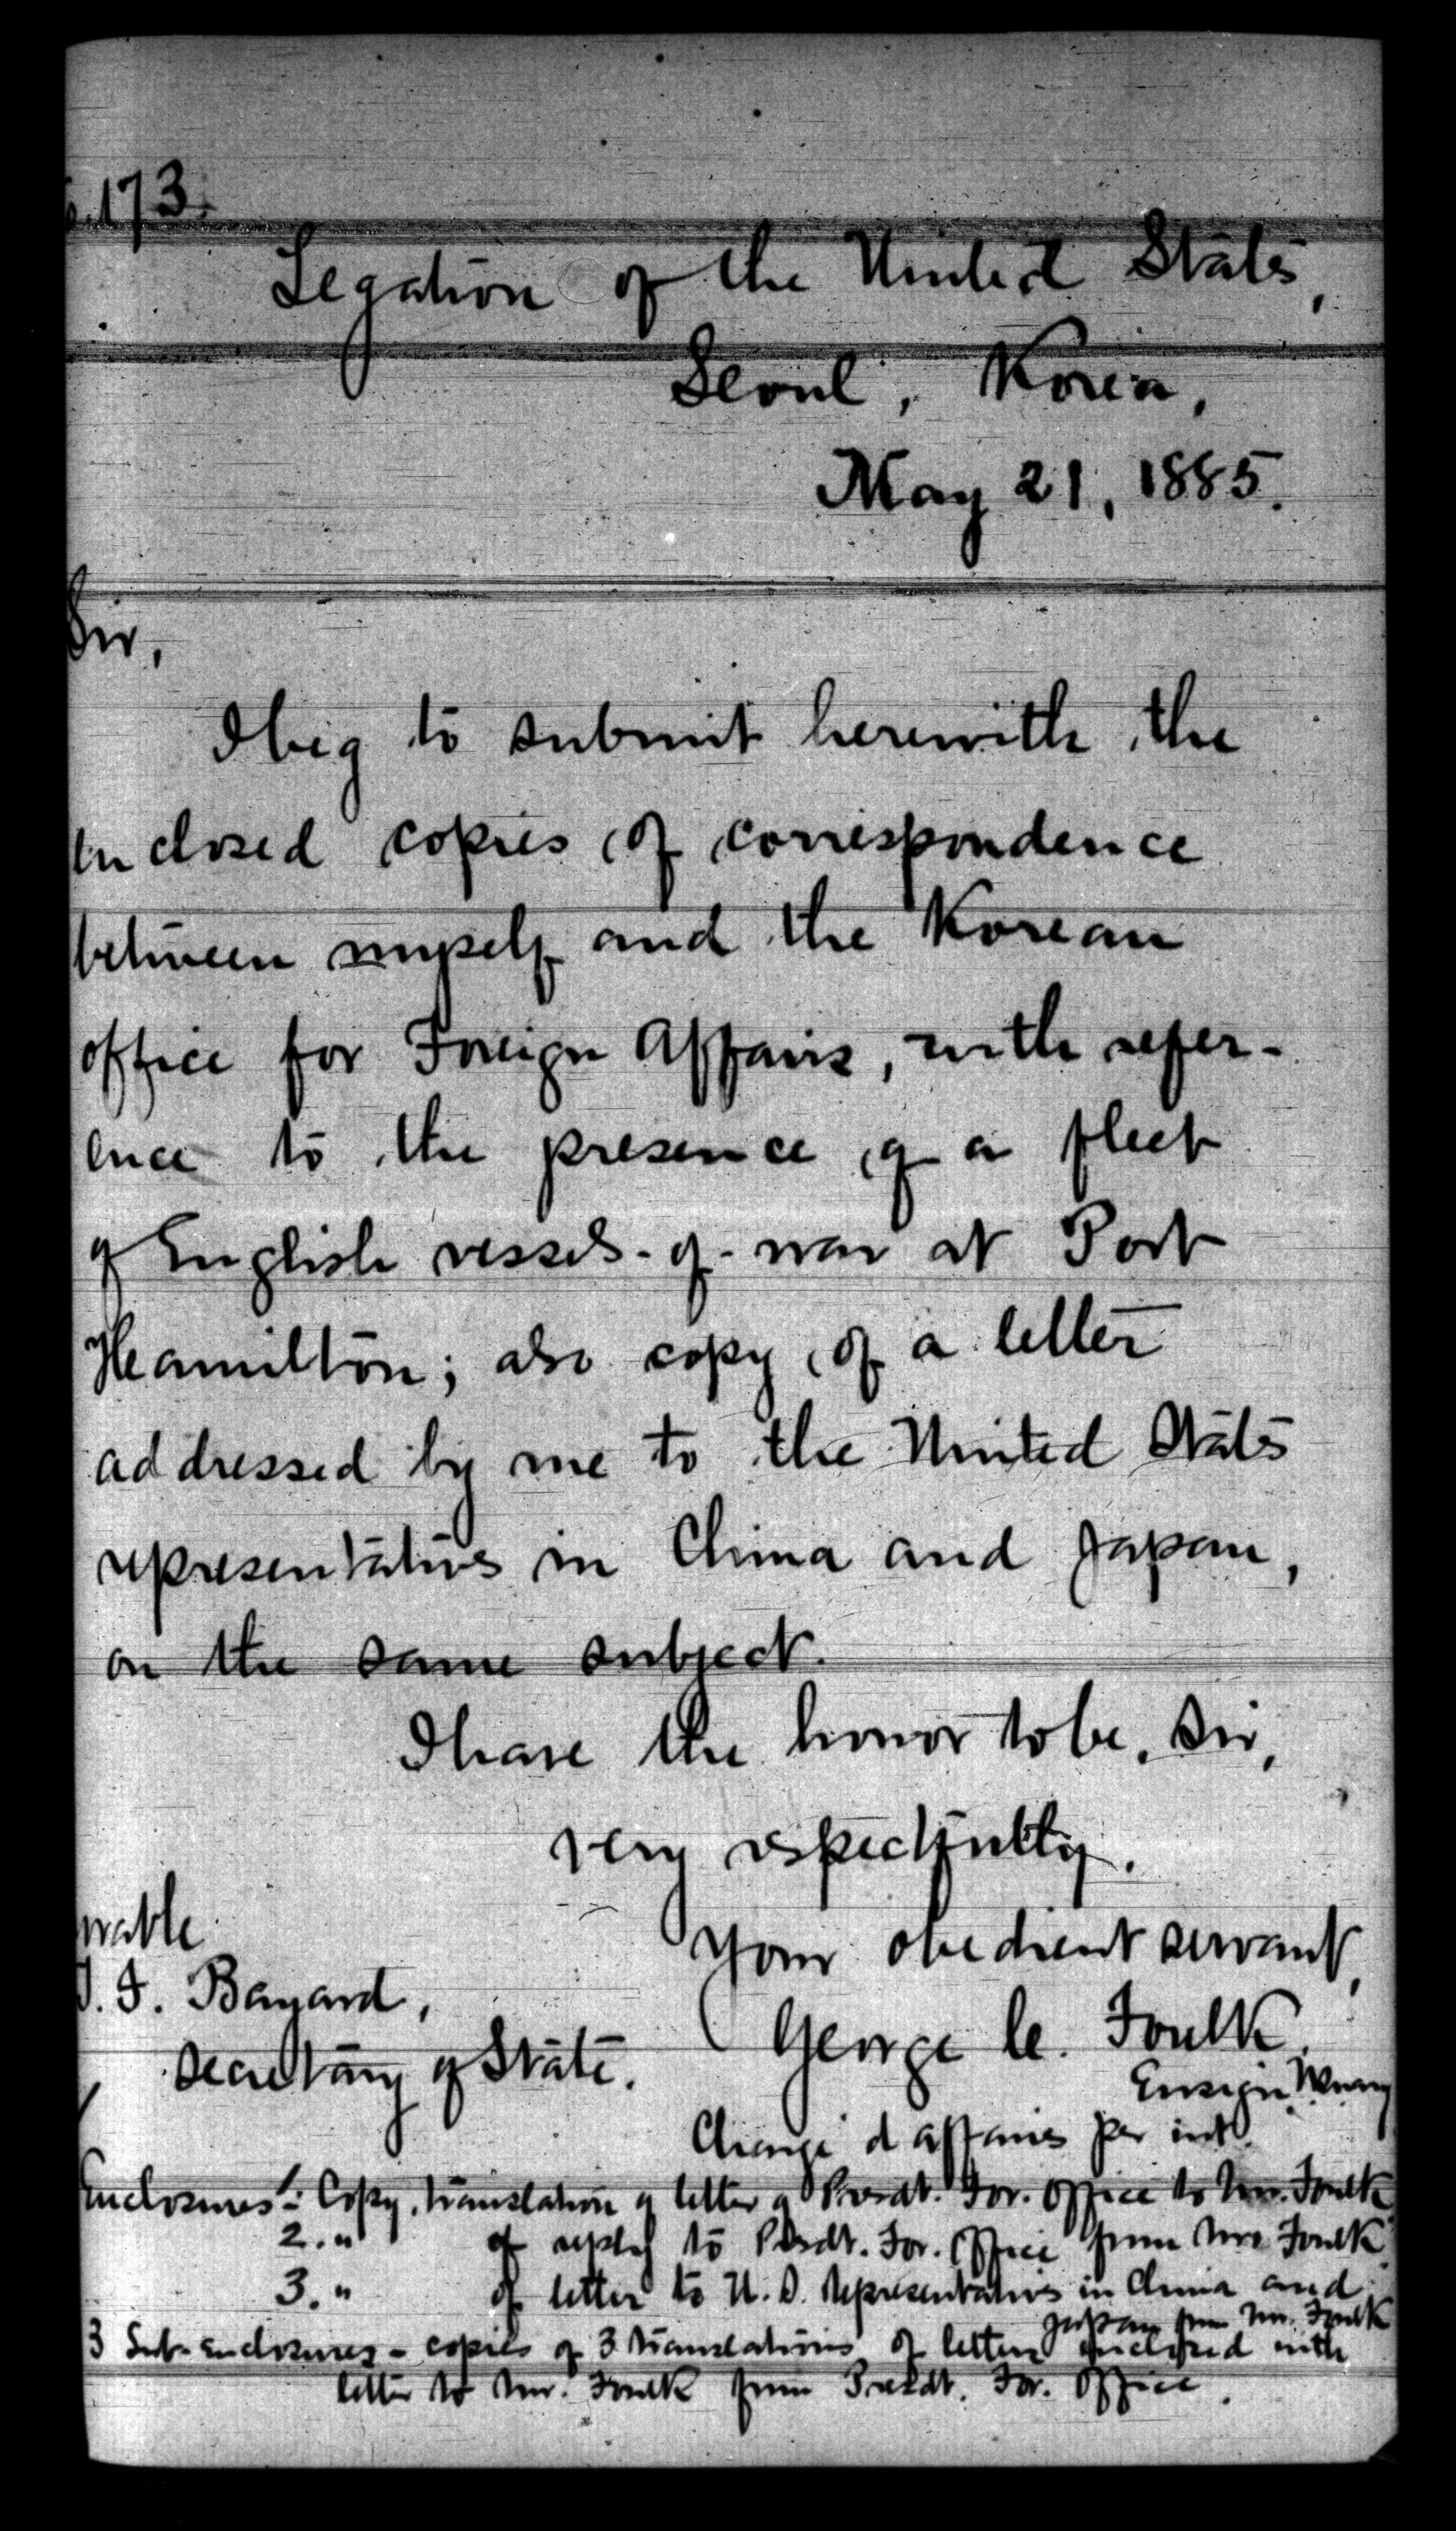 173.
Legation of the United States,
Seoul, Korea,
May 21, 1885.
Sir,
I beg to submit herewith the
enclosed copies of correspondence
between myself and the Korean
office for Foreign Affairs, with refer-
ence to the presence of a fleet
of English vessels-of-war at Port
Hamilton; also copy of a letter
addressed by me to the United States
representatives in China and Japan,
on the same subject.
I have the honor to be, Sir,
very respectfully,
Your obedient servant,
George C. Foulk,
Ensign, Navy
Chargé d'affaires per int.
orable
T. F. Bayard,
Secretary of State.
Enclosures 1. Copy, translation of letter of Presdt. For. Office to Mr. Foulk
2. " of reply to Presdt. For. Office from Mr. Foulk
3. " of letter to U. S. Representatives in China and
Japan from Mr. Foulk
3 Sub-enclosures - copies of 3 translations of letters enclosed with
letter to Mr. Foulk from Presdt. For. Office.